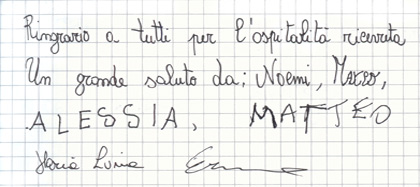 Ringrazio a tutti per l'ospitalità ricevuta
Un grande saluto da: Noemi, Marco,
ALESSIA, MATTEO
Maria Luisa